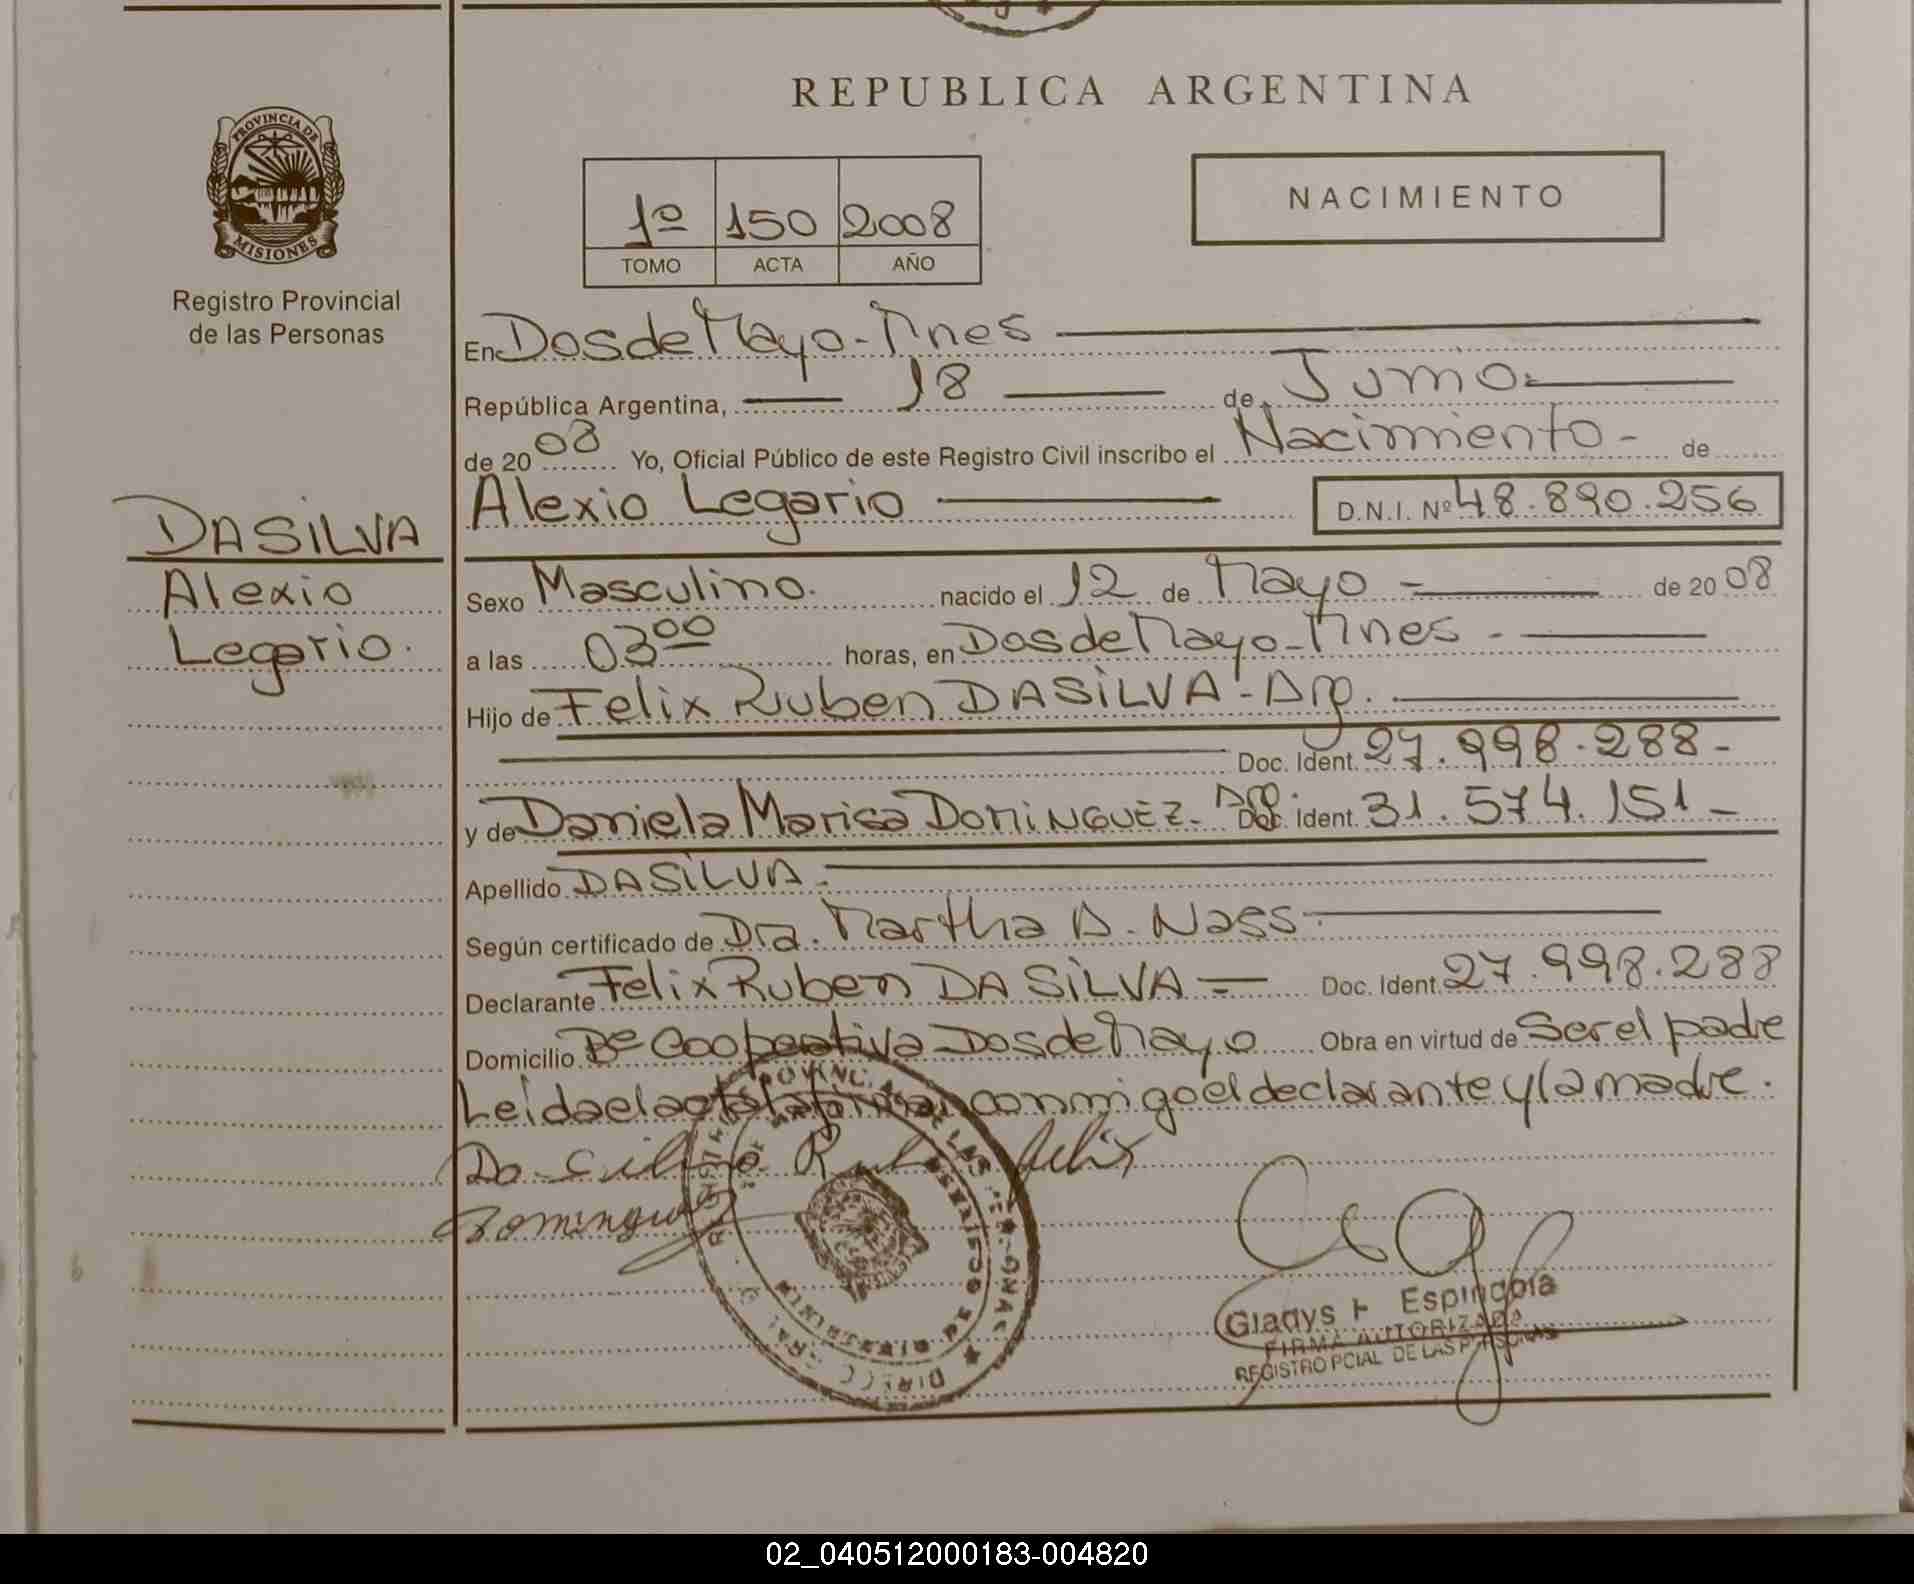 REPUBLICA ARGENTINA
PROVINCIA DE
MISIONES
Registro Provincial
de las Personas
1º 150 2008
TOMO ACTA AÑO
NACIMIENTO
En Dos de Mayo - Mnes
República Argentina, 18 de Junio
de 20 08 Yo, Oficial Público de este Registro Civil inscribo el Nacimiento - de
Alexio Legario D.N.I. Nº 48.890.256
DA SILVA
Alexio
Legario.
Sexo Masculino. nacido el 12 de Mayo - de 20 08
a las 03 00 horas, en Dos de Mayo - Mnes -
Hijo de Felix Ruben DA SILVA - Arg.
Doc. Ident. 27.998.288 -
y de Daniela Marisa DOMINGUEZ - Arg. Doc. Ident. 31.574.151 -
Apellido DA SILVA -
Según certificado de Dra. Martha A. Nass -
Declarante Felix Ruben DA SILVA - Doc. Ident. 27.998.288
Domicilio Bº Cooperativa Dos de Mayo Obra en virtud de Ser el padre
Leida el acta la firman conmigo el declarante y la madre.
Da Silva Ruben Felix
Dominguez
Gladys Espindola
FIRMA AUTORIZADA
REGISTRO PCIAL DE LAS PERSONAS
02_040512000183-004820